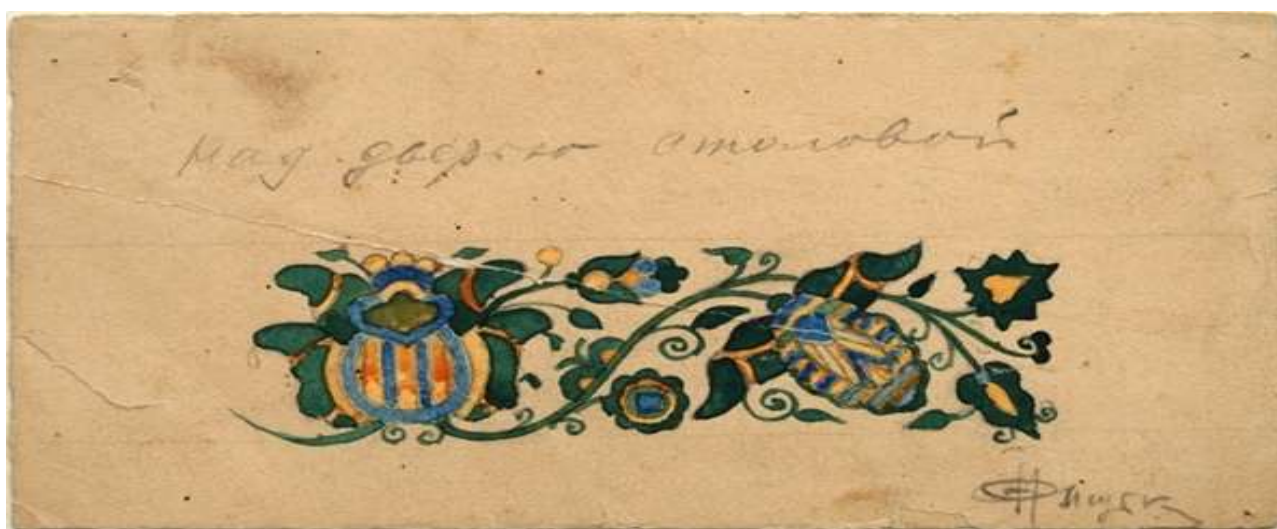 над дверью столовой